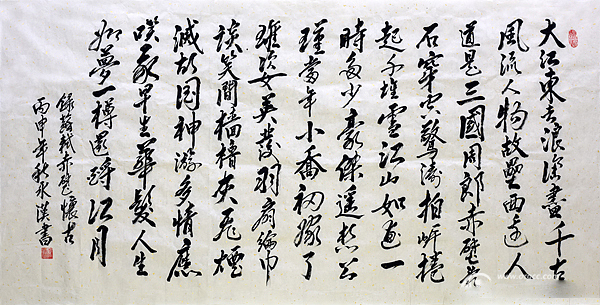 大江東去浪淘盡千古
風流人物故壘西邊人
道是三國周郎赤壁亂
石穿空驚濤拍岸捲
起千堆雪江山如画一
時多少豪傑遙想公
瑾當年小喬初嫁了
雄姿英發羽扇綸巾
談笑間檣櫓灰飛煙
滅故国神游多情應
笑我早生華髮人生
如夢一樽還酹江月
錄蘇軾赤壁懷古
丙申年秋永漢書